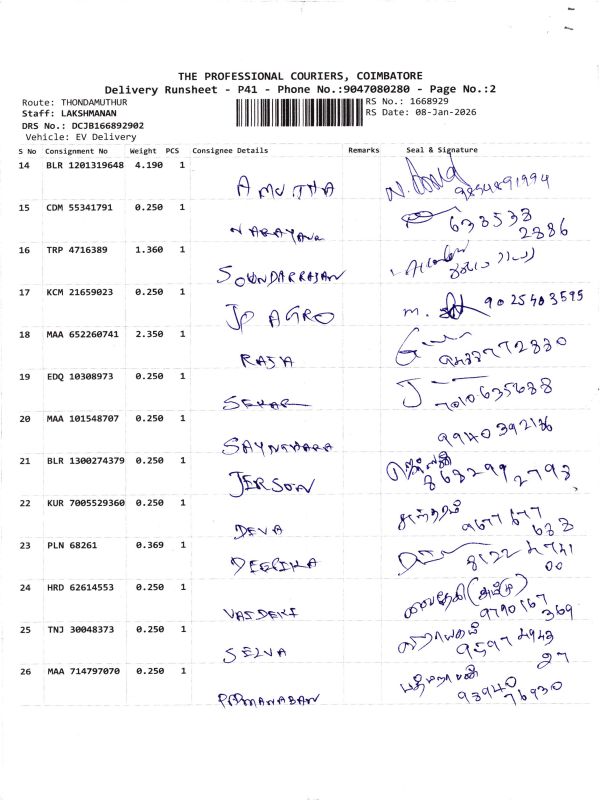 THE PROFESSIONAL COURIERS, COIMBATORE
Delivery Runsheet - P41 - Phone No.:9047080280 - Page No.:2
Route: THONDAMUTHUR
RS No.: 1668929
Staff: LAKSHMANAN
RS Date: 08-Jan-2026
DRS No.: DCJB166892902
Vehicle: EV Delivery
S No Consignment No Weight PCS Consignee Details Remarks Seal & Signature
14 BLR 1201319648 4.190 1
AMUTHA
9894891994
15 CDM 55341791 0.250 1
NARAYANA 638538
2886
16 TRP 4716389 1.360 1
SOUNDARRAJAN
17 KCM 21659023 0.250 1
JP AGRO m. 9025403595
18 MAA 652260741 2.350 1
RAJA
19 EDQ 10308973 0.250 1
SEKAR 7010635688
20 MAA 101548707 0.250 1
9940392186
21 BLR 1300274379 0.250 1
JERSON 868299 2798
22 KUR 7005529360 0.250 1
DEVA 9677677
688
23 PLN 68261 0.369 1
DEEPIKA 8122 4741
00
24 HRD 62614553 0.250 1
VAIDEKI 9790167
369
25 TNJ 30048373 0.250 1
SELVA 9597 4943
27
26 MAA 714797070 0.250 1
பத்மநாபன்
PADMANABAN 93940
76930